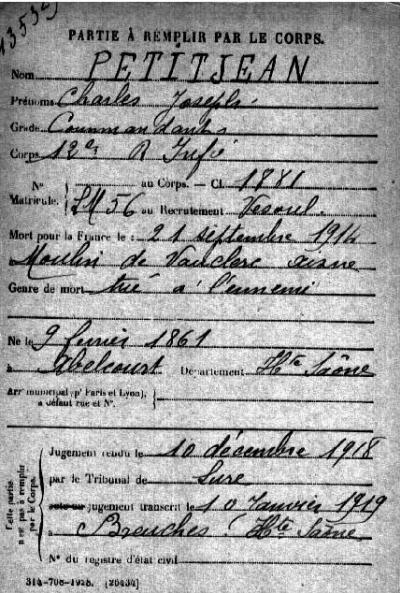 PARTIE À REMPLIR PAR LE CORPS.
Nom PETITJEAN
Prénoms Charles Joseph
Grade Commandant
Corps 12e R Infie
N° au Corps. — Cl. 1881
Matricule. LM 56 au Recrutement Vesoul
Mort pour la France le : 21 septembre 1914
à Moulin de Vauclerc aisne
Genre de mort tué à l'ennemi
Né le 9 février 1861
à Abelcourt Département Hte Saône
Arr' municipal (pr Paris et Lyon),
à défaut rue et N°.
Cette partie
n'est pas à remplir
par le Corps.
Jugement rendu le 10 décembre 1918
par le Tribunal de Lure
acte ou jugement transcrit le 10 Janvier 1919
à Breuches Hte Saône
N° du registre d'état civil
314-708-1928. [26434]